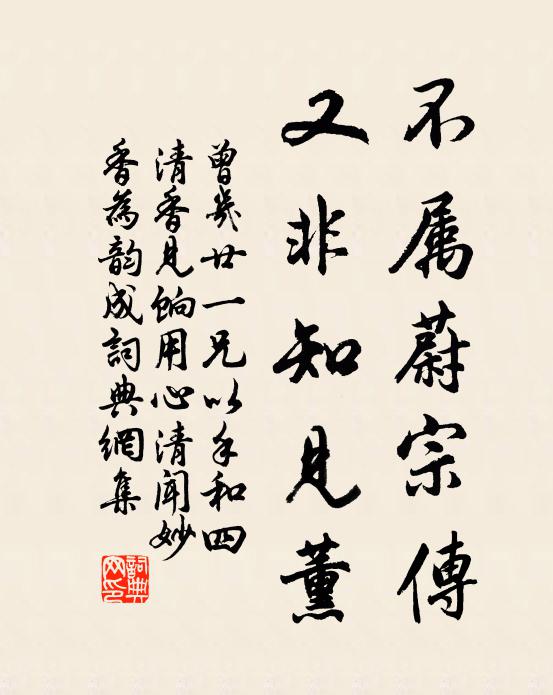 不属蔚宗傳
又非知見薰
曾幾廿一兄以手和四
清香見餉用心清闻妙
香為韵成詞典網集
詞典
网印